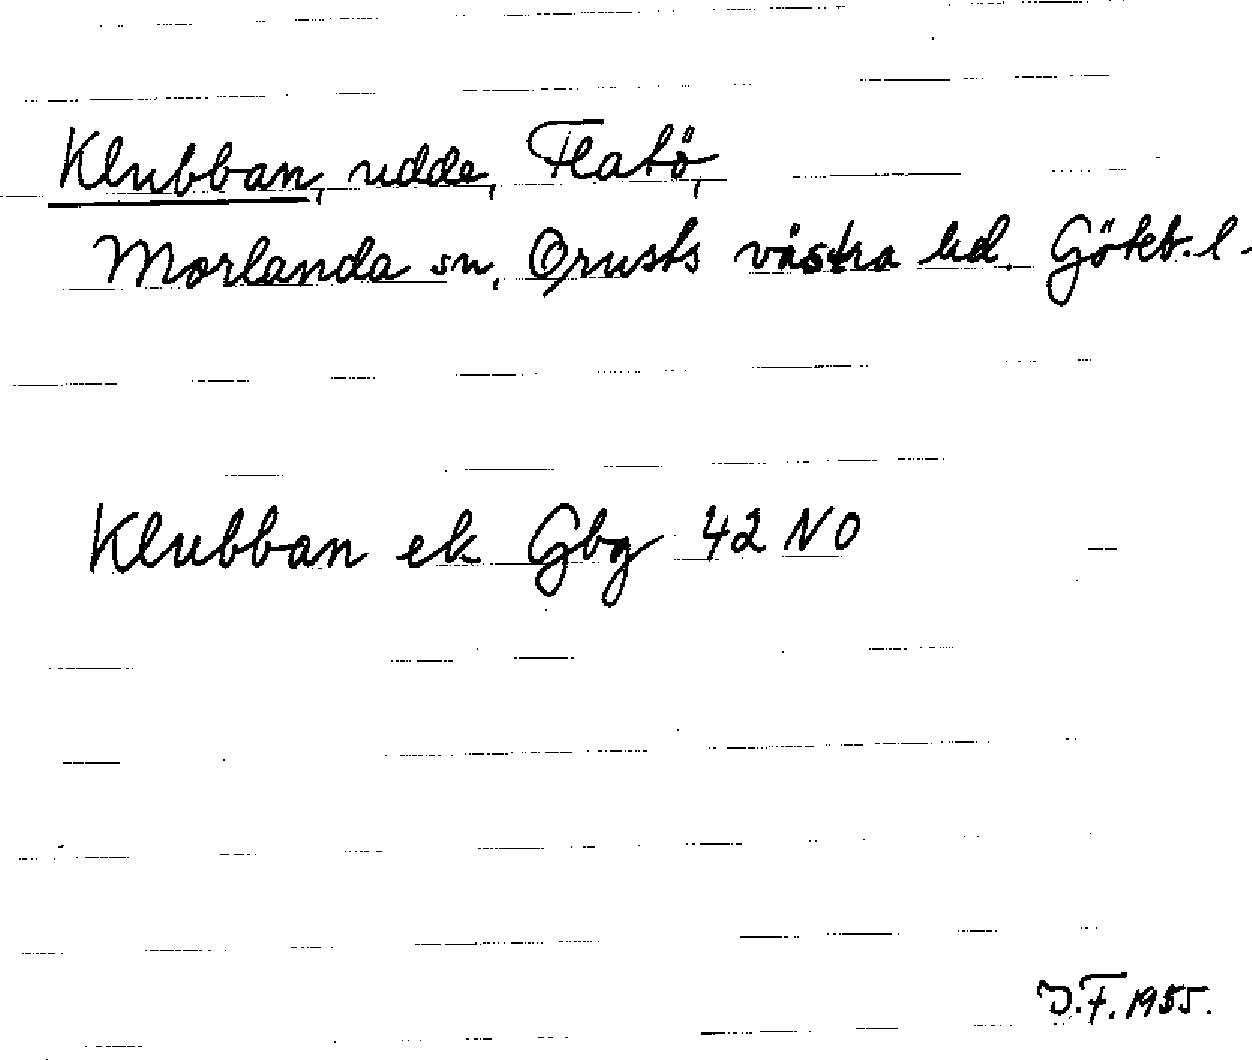 Klubban, udde, Flatö,
Morlanda sn, Orusts västra hd. Göteb. l.
Klubban ek Gbg 42 NO
J.F. 1955.